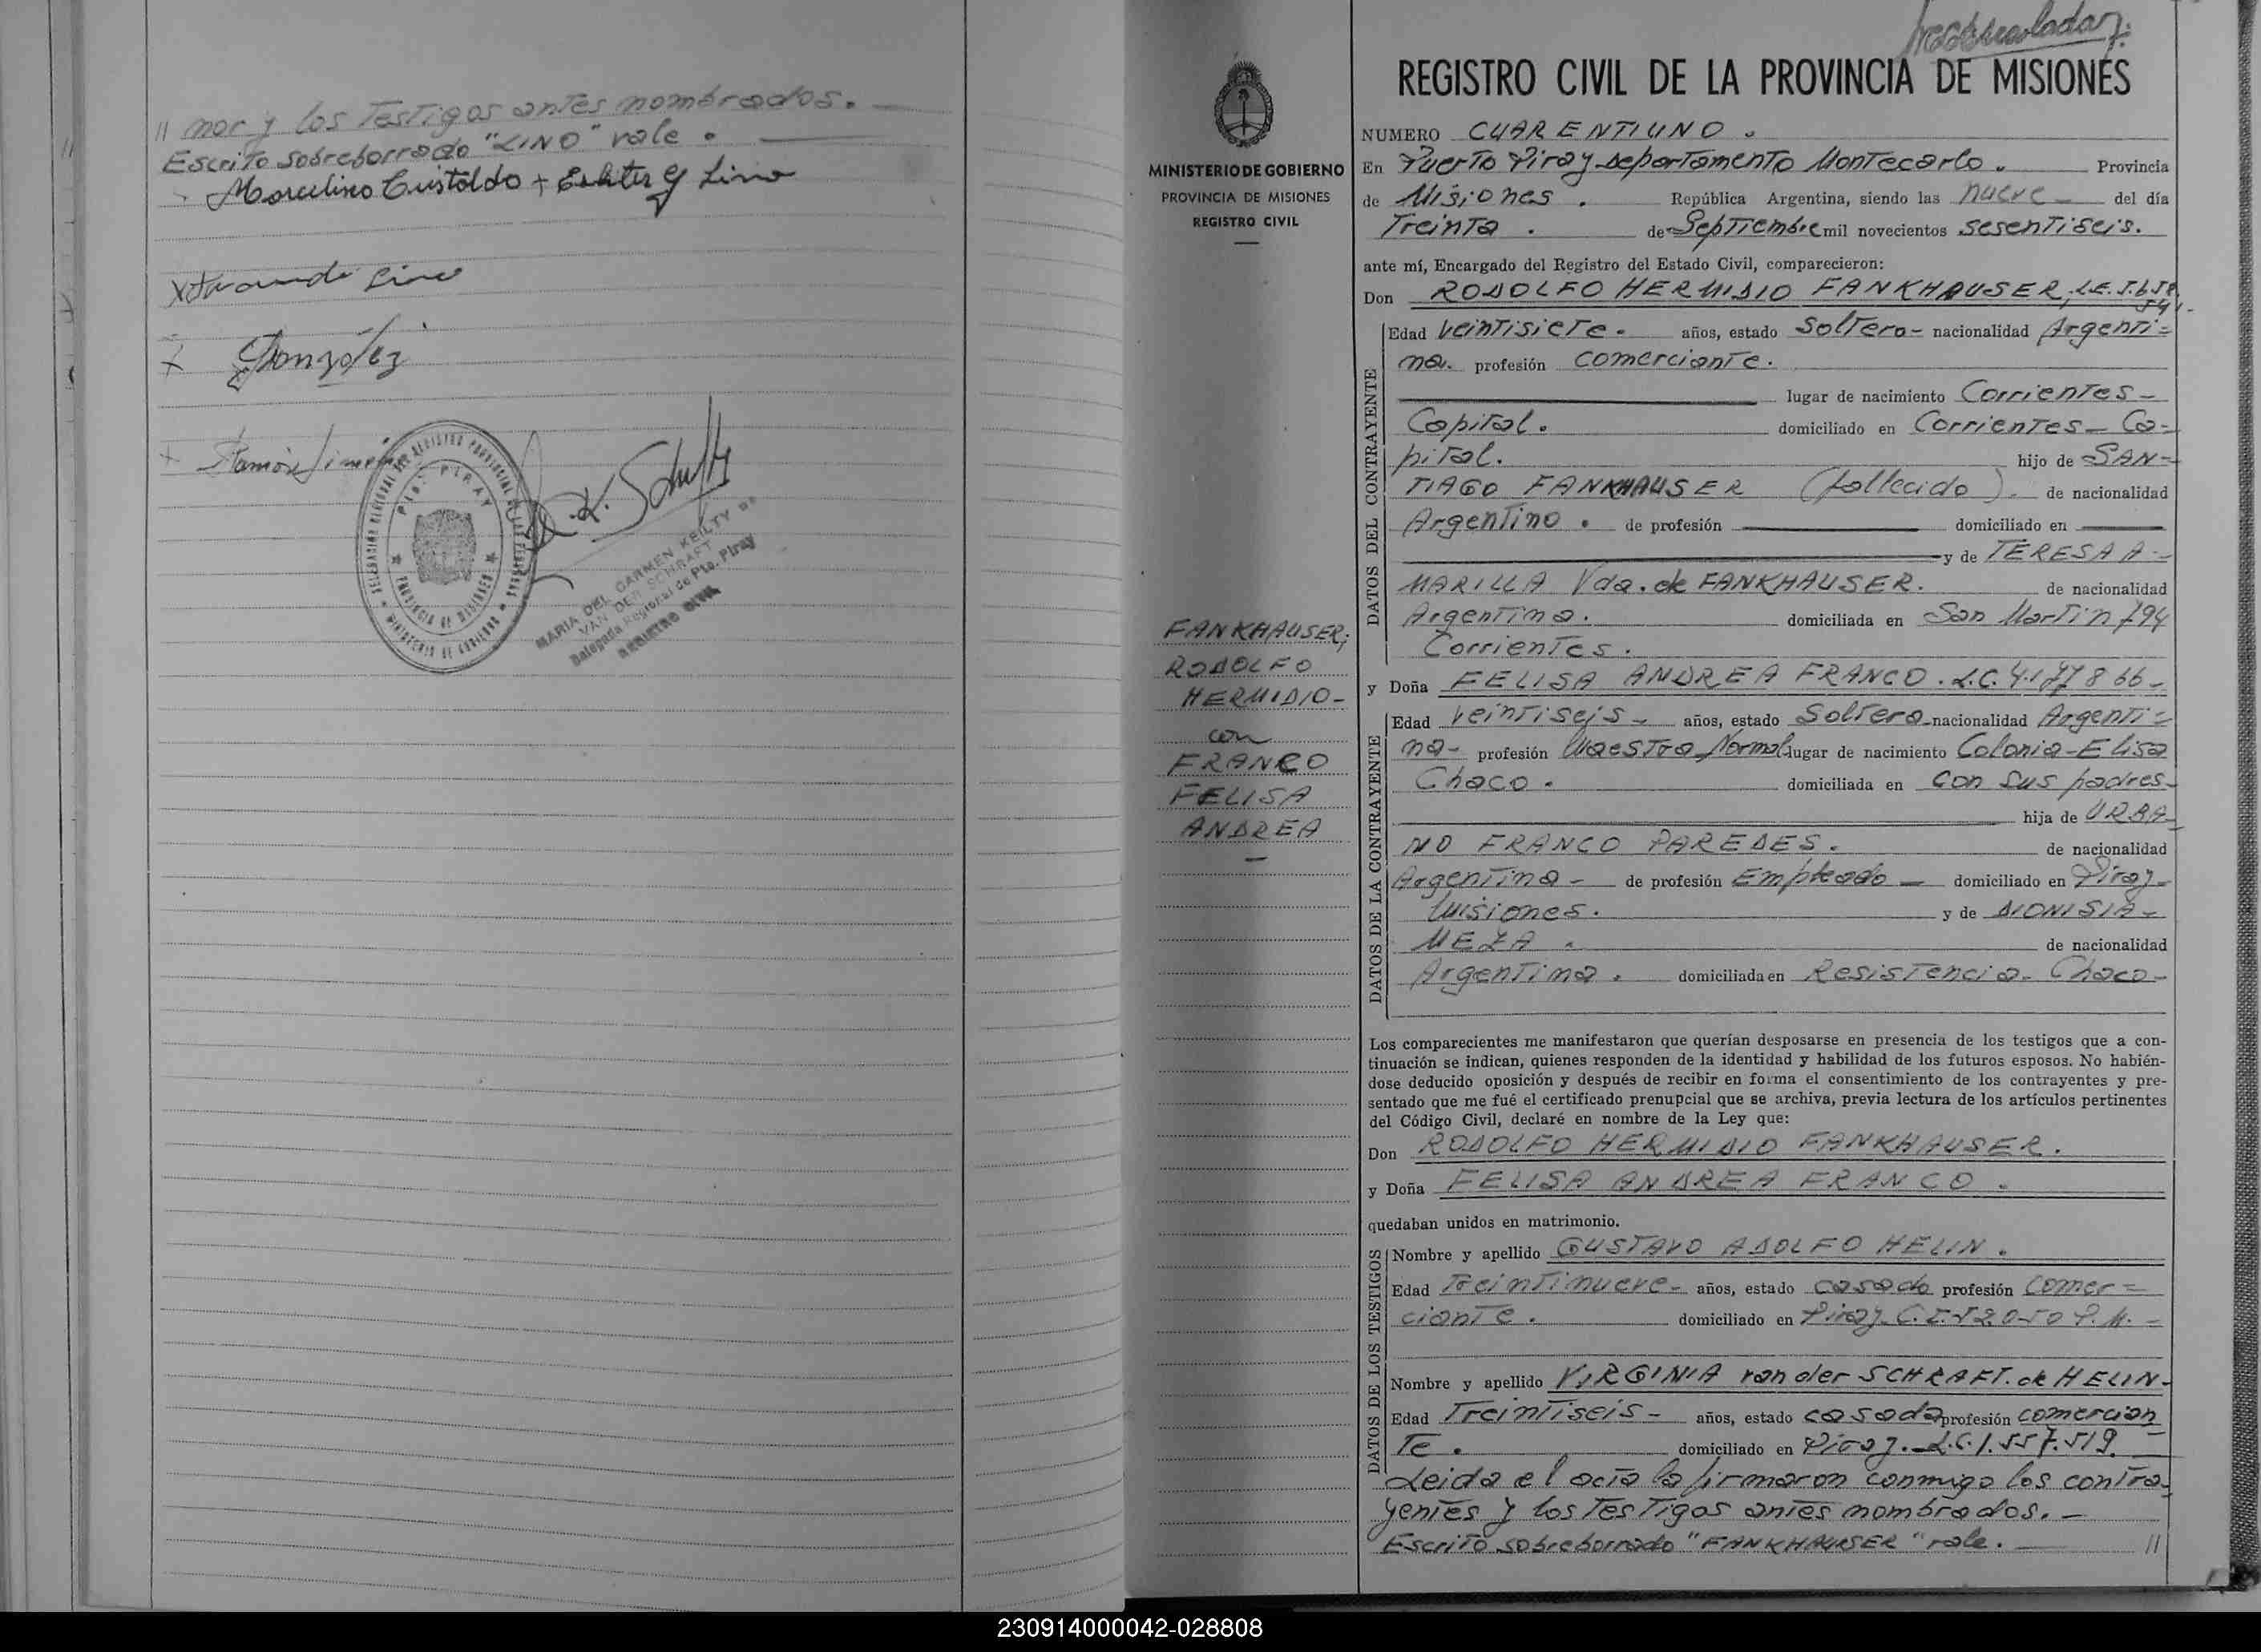 // mor y los Testigos antes nombrados. —
Escrito sobreborrado "LINO" vale. —
Marcelino Cristaldo +
Lino
González
Ramón Jimén
DELEGACION REGIONAL DEL REGISTRO PROVINCIAL DE LAS PERSONAS
PTO. PIRAY
PROVINCIA DE MISIONES
MINISTERIO DE GOBIERNO
MARIA DEL CARMEN KEILTY DE
VAN DER SCHRAFT
Delegada Regional de Pto. Piray
REGISTRO CIVIL
MINISTERIO DE GOBIERNO
PROVINCIA DE MISIONES
REGISTRO CIVIL
FANKHAUSER,
RODOLFO
HERMIDIO-
con
FRANCO
FELISA
ANDREA
—
REGISTRO CIVIL DE LA PROVINCIA DE MISIONES
NUMERO CUARENTIUNO.
En Puerto Piray-departamento Montecarlo. Provincia
de Misiones. República Argentina, siendo las nueve — del día
Treinta. de Septiembre mil novecientos sesentiseis.
ante mí, Encargado del Registro del Estado Civil, comparecieron:
Don RODOLFO HERMIDIO FANKHAUSER, L.E. 5.658
DATOS DEL CONTRAYENTE
Edad veintisiete. años, estado Soltero- nacionalidad Argenti=
na. profesión comerciante.
lugar de nacimiento Corrientes-
Capital. domiciliado en Corrientes- Ca-
pital. hijo de SAN-
TIAGO FANKHAUSER (fallecido). de nacionalidad
Argentino. de profesión — domiciliado en —
y de TERESA A-
MARILLA Vda. de FANKHAUSER. de nacionalidad
Argentina. domiciliada en San Martin 794
Corrientes.
y Doña FELISA ANDREA FRANCO. L.C. 4.177866-
DATOS DE LA CONTRAYENTE
Edad veintiseis- años, estado Soltera- nacionalidad Argenti=
na- profesión Maestra Normal lugar de nacimiento Colonia-Elisa
Chaco. domiciliada en con sus padres-
hija de URBA-
NO FRANCO PAREDES. de nacionalidad
Argentina- de profesión Empleado — domiciliado en Piray-
Misiones. y de DIONISIA-
MEZA. de nacionalidad
Argentina. domiciliada en Resistencia- Chaco-
Los comparecientes me manifestaron que querían desposarse en presencia de los testigos que a con-
tinuación se indican, quienes responden de la identidad y habilidad de los futuros esposos. No habién-
dose deducido oposición y después de recibir en forma el consentimiento de los contrayentes y pre-
sentado que me fué el certificado prenupcial que se archiva, previa lectura de los artículos pertinentes
del Código Civil, declaré en nombre de la Ley que:
Don RODOLFO HERMIDIO FANKHAUSER.
y Doña FELISA ANDREA FRANCO.
quedaban unidos en matrimonio.
DATOS DE LOS TESTIGOS
Nombre y apellido GUSTAVO ADOLFO HELIN.
Edad Treintinueve- años, estado casado profesión comer=
ciante. domiciliado en Piray- C.I. 52.050 P.M. -
Nombre y apellido VIRGINIA van der SCHRAFT. de HELIN-
Edad Treintiseis- años, estado casada profesión comercian
Te. domiciliado en Piray.- L.C. 1.557.519.
Leida el acta la firmaron conmigo los contra-
yentes y los Testigos antes nombrados. -
Escrito sobreborrado "FANKHAUSER" vale. — //
230914000042-028808